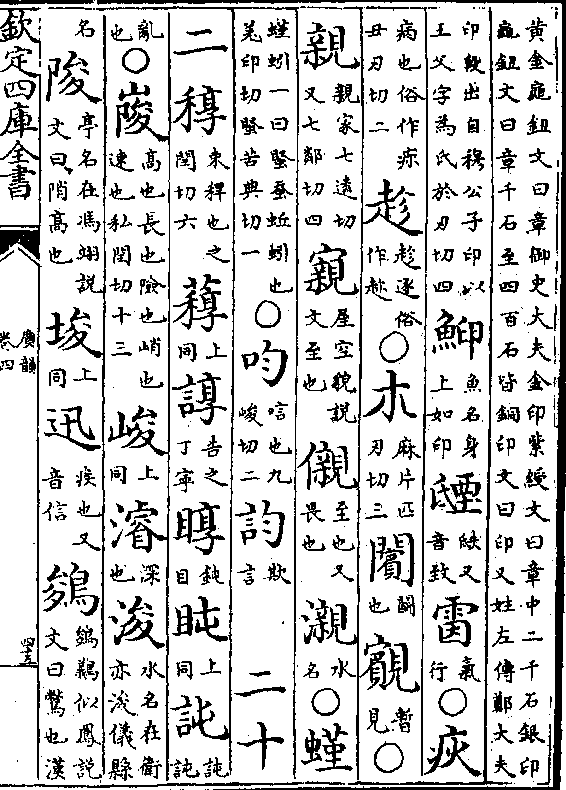 黄金龜鈕文曰章御史大夫金印紫綬文曰章中二千石銀印
龜鈕文曰章千石至四百石皆銅印文曰印又姓左傳鄭大夫
印叚出自穆公子印以王父字為氏於刃切四 䲟 魚名身上如印 䑛又音致 䨙 氣行 ○ 疢
病也俗作疹丑刃切二 趁 趁逐俗作趂 ○ 朩 麻片匹刃切三 鬭也 䚔 暫見 ○
親 親家七遴切又七鄰切四 寴 屋空皃說文至也 儭 至也又畏也 瀙 水名 ○ 螼
螼蚓一曰䗝蚕蚯蚓也羌印切䗝苦典切一 ○ 呁 唁也九峻切二 訋 欺言 二十
二 稕 束稈也之閏切六 上同 諄 告之丁寧 鈍目 盹 上同 訰 訰訰
亂也 ○ 高也長也險也峭也速也私閏切十三 峻 上同 濬 深也 浚 水名在衛亦浚儀縣
名 陖 亭名在馮翊說文曰陗高也 埈 上同 迅 疾也又音信 鵕 鵕䴊似鳳說文曰鷩也漢
欽定四庫全書
廣韻
卷四
四十五